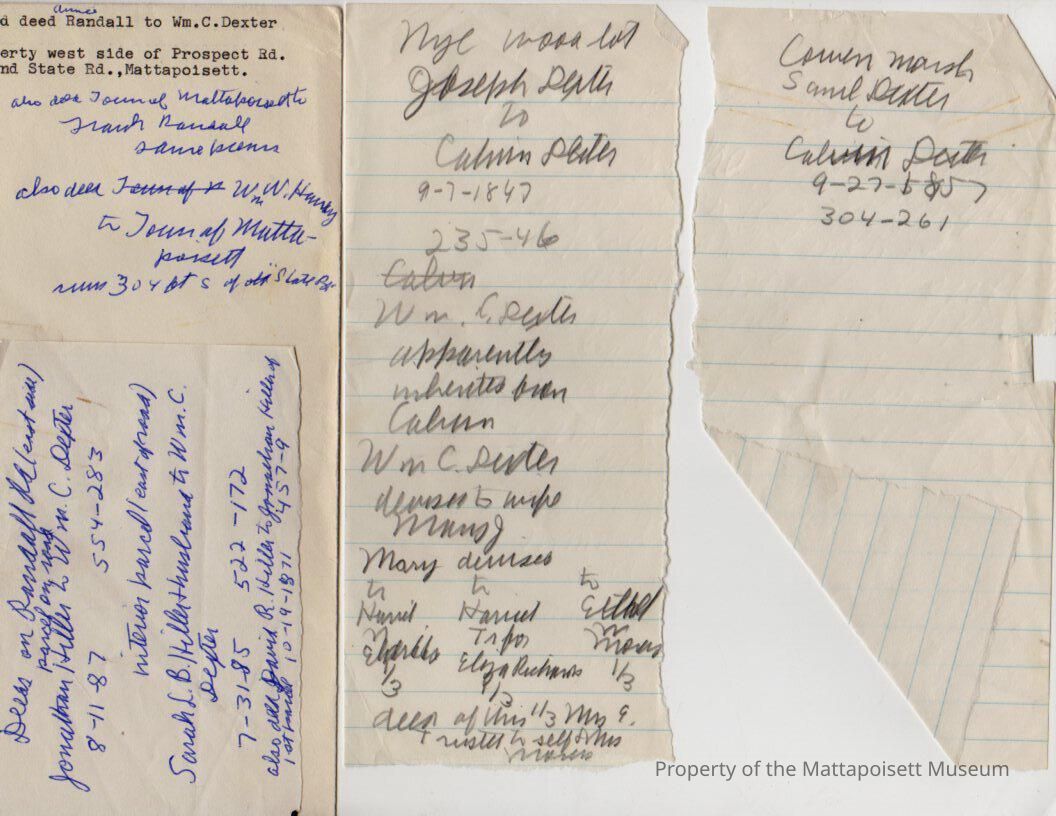 d deed Randall to Wm.C.Dexter
erty west side of Prospect Rd.
nd State Rd.,Mattapoisett.
also deed Town of Mattapoisett to
Frank Randall
same
also deed Town of Wm W.
to Town of Matta-
poisett
runs 304 ft S of old State Rd
Deeds on Randall Rd (east side)
parcel on road
Jonathan Hiller to Wm. C. Dexter
8-11-87 554-283
interior parcel (east of road)
Sarah L.B. Hiller & husband to Wm. C.
Dexter
7-31-85 522-172
also deed David R. Hiller to Jonathan Hiller of
1st parcel 10-19-1871 457-9
Nye wood lot
Joseph Dexter
to
Calvin Dexter
9-7-1847
235-46
Calvin
Wm. C. Dexter
apparently
inherited from
Calvin
Wm C. Dexter
devises to wife
Mary J
Mary devises
to to to
Harriet Ethel
Eliza Richards
1/3 1/3 1/3
deed of this 1/3 Mrs E.
to self & Mrs
Cowen marsh
Saml Dexter
to
Calvin Dexter
9-27-1857
304-261
Property of the Mattapoisett Museum